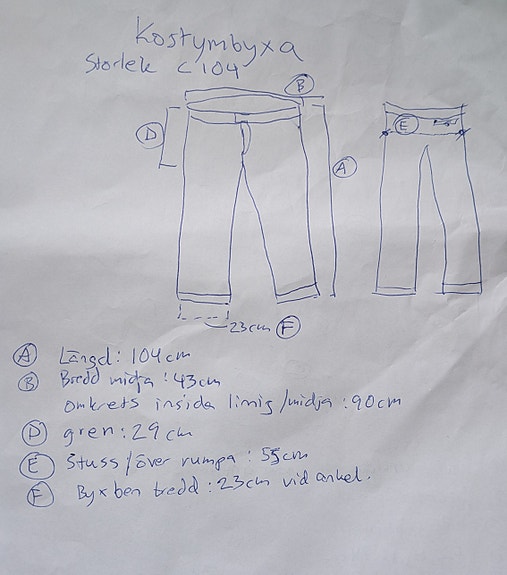 Kostymbyxa
Storlek C 104
B
D
E
A
23cm F
A Längd: 104cm
B Bredd midja: 43cm
omkrets insida linig/midja: 90cm
D gren: 29 cm
E Stuss/över rumpa: 55cm
F Byxben bredd: 23cm vid ankel.